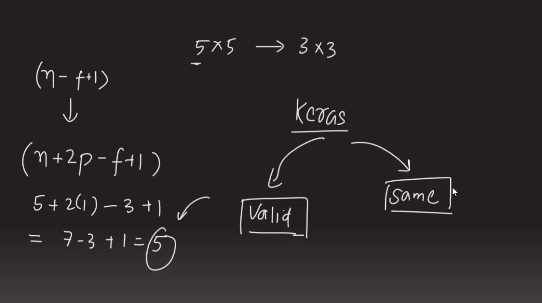 5×5 → 3×3
(n-f+1)
↓
(n+2p-f+1)
5+2(1)-3+1
= 7-3+1=5
Keras
Valid
Same